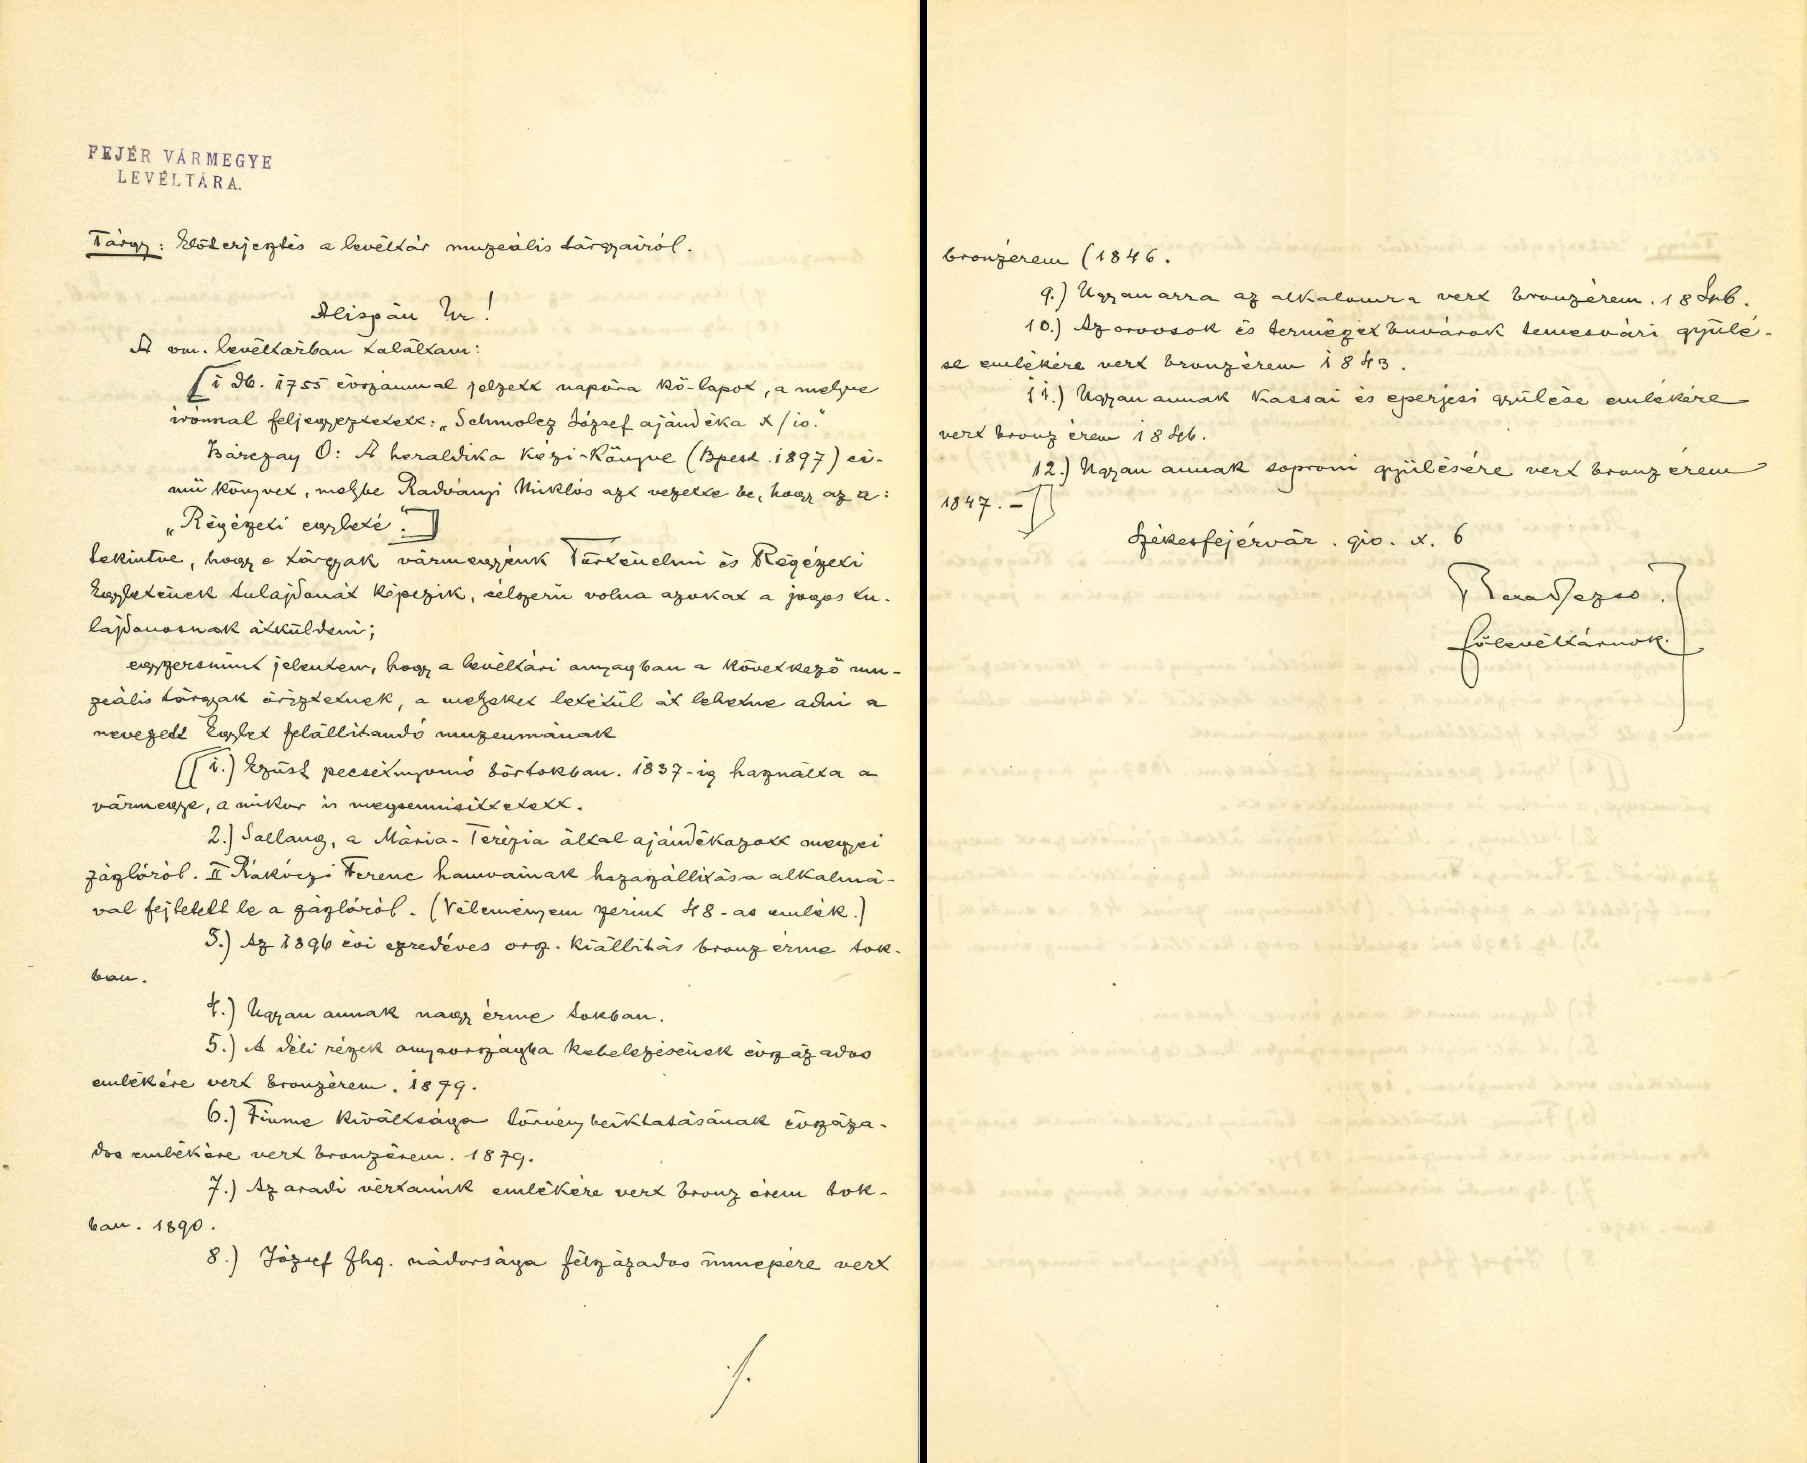 FEJÉR VÁRMEGYE
LEVÉLTÁRA.
Tárgy: Előterjesztés a levéltár muzeális tárgyairól.
Alispán Ur!
A vm. levéltárban találtam:
1 db. 1755 évszámmal jelzett napóra kő-lapot, a melyre
irónnal feljegyeztetett: „Schmolcz József ajándéka X/10."
Bárczay O: A heraldika kézi-könyve (Bpest. 1897) ci-
mü könyvet, melybe Radványi Miklós azt vezette be, hogy az a:
„Régészeti egyleté".
tekintve, hogy e tárgyak vármegyénk Történelmi és Régészeti
Egyletének tulajdonát képezik, célszerü volna azokat a jogos tu-
lajdonosnak átküldeni;
egyszersmint jelentem, hogy a levéltári anyagban a következő mu-
zeális tárgyak őriztetnek, a melyeket letétül át lehetne adni a
nevezett Egylet felállitandó muzeumának
1.) Ezüst pecsétnyomó tórtokban. 1837-ig használta a
vármegye, a mikor is megsemmisittetett.
2.) Sallang, a Mária-Terézia által ajándékozott megyei
zászlóról. II Rákóczi Ferenc hamvainak hazaszállitása alkalmá-
val fejtetett le a zászlóról. (Véleményem szerint 48-as emlék.)
3.) Az 1896 évi ezredéves orsz. kiállitás bronz érme tok-
ban.
4.) Ugyan annak nagy érme tokban.
5.) A déli részek anyaországba kebelezésének évszázados
emlékére vert bronzérem. 1879.
6.) Fiume kiváltsága törvény beiktatásának évszáza-
dos emlékére vert bronzérem. 1879.
7.) Az aradi vértanúk emlékére vert bronz érem tok-
ban. 1890.
8.) József fhg. nádorsága félszázados ünnepére vert
bronzérem (1846.
9.) Ugyan arra az alkalomra vert bronzérem. 1846.
10.) Az orvosok és természetbuvárok temesvári gyülé-
se emlékére vert bronzérem 1843.
11.) Ugyan annak kassai és eperjesi gyülése emlékére
vert bronz érem 1846.
12.) Ugyan annak soproni gyülésére vert bronz érem
1847. -
Székesfejérvár. 910. X. 6
Rexa Dezső.
főlevéltárnok.